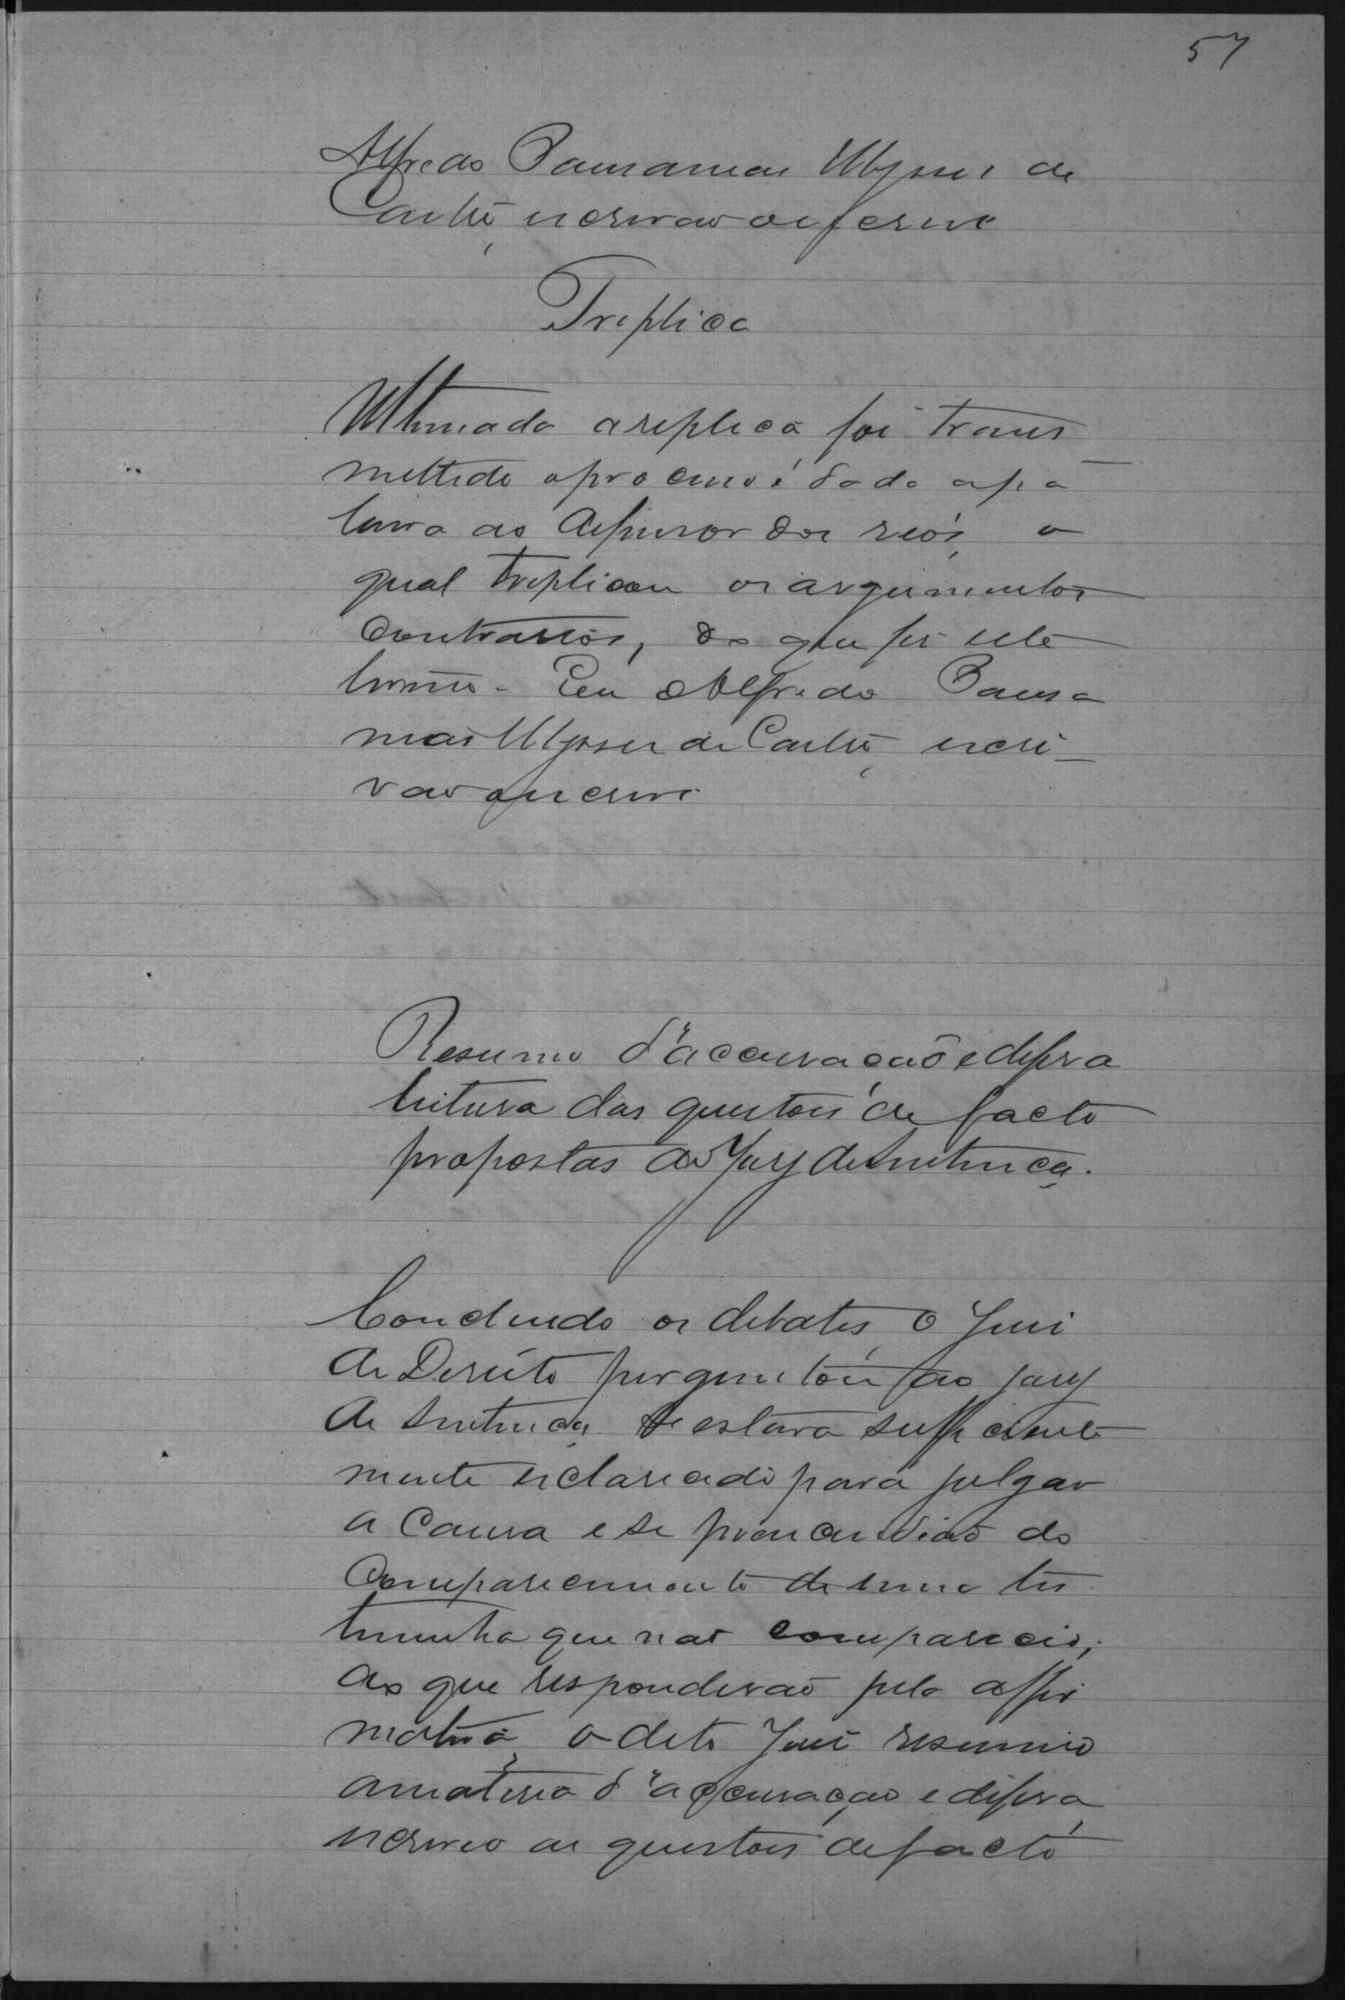 57
Alfredo Pausanias Ulysses de
Castro, escrivão que escrevi
Treplica
Ultimada a replica foi trans
mettido o processo e dada a pa
lavra ao defensor dos reos, o
qual treplicou os argumentos
contrarios, do que fiz este
termo. Eu Alfredo Pausa
nias Ulysses de Castro, escri_
vão que escrevi
Resumo d'accusação e defesa
leitura das questões de facto
propostas ao Jury de Sentença.
Concluindo os debates, o Juiz
de Direito perguntou ao jury
de sentença se estava sufficiente
mente esclarecido para julgar
a causa e se prescindião do
comparecimento de uma tes
temunha que não compareceu,
ao que responderão pela affir
mativa, o dito Juiz resumio
a materia d'accusação e defesa,
escreveo as questões de facto